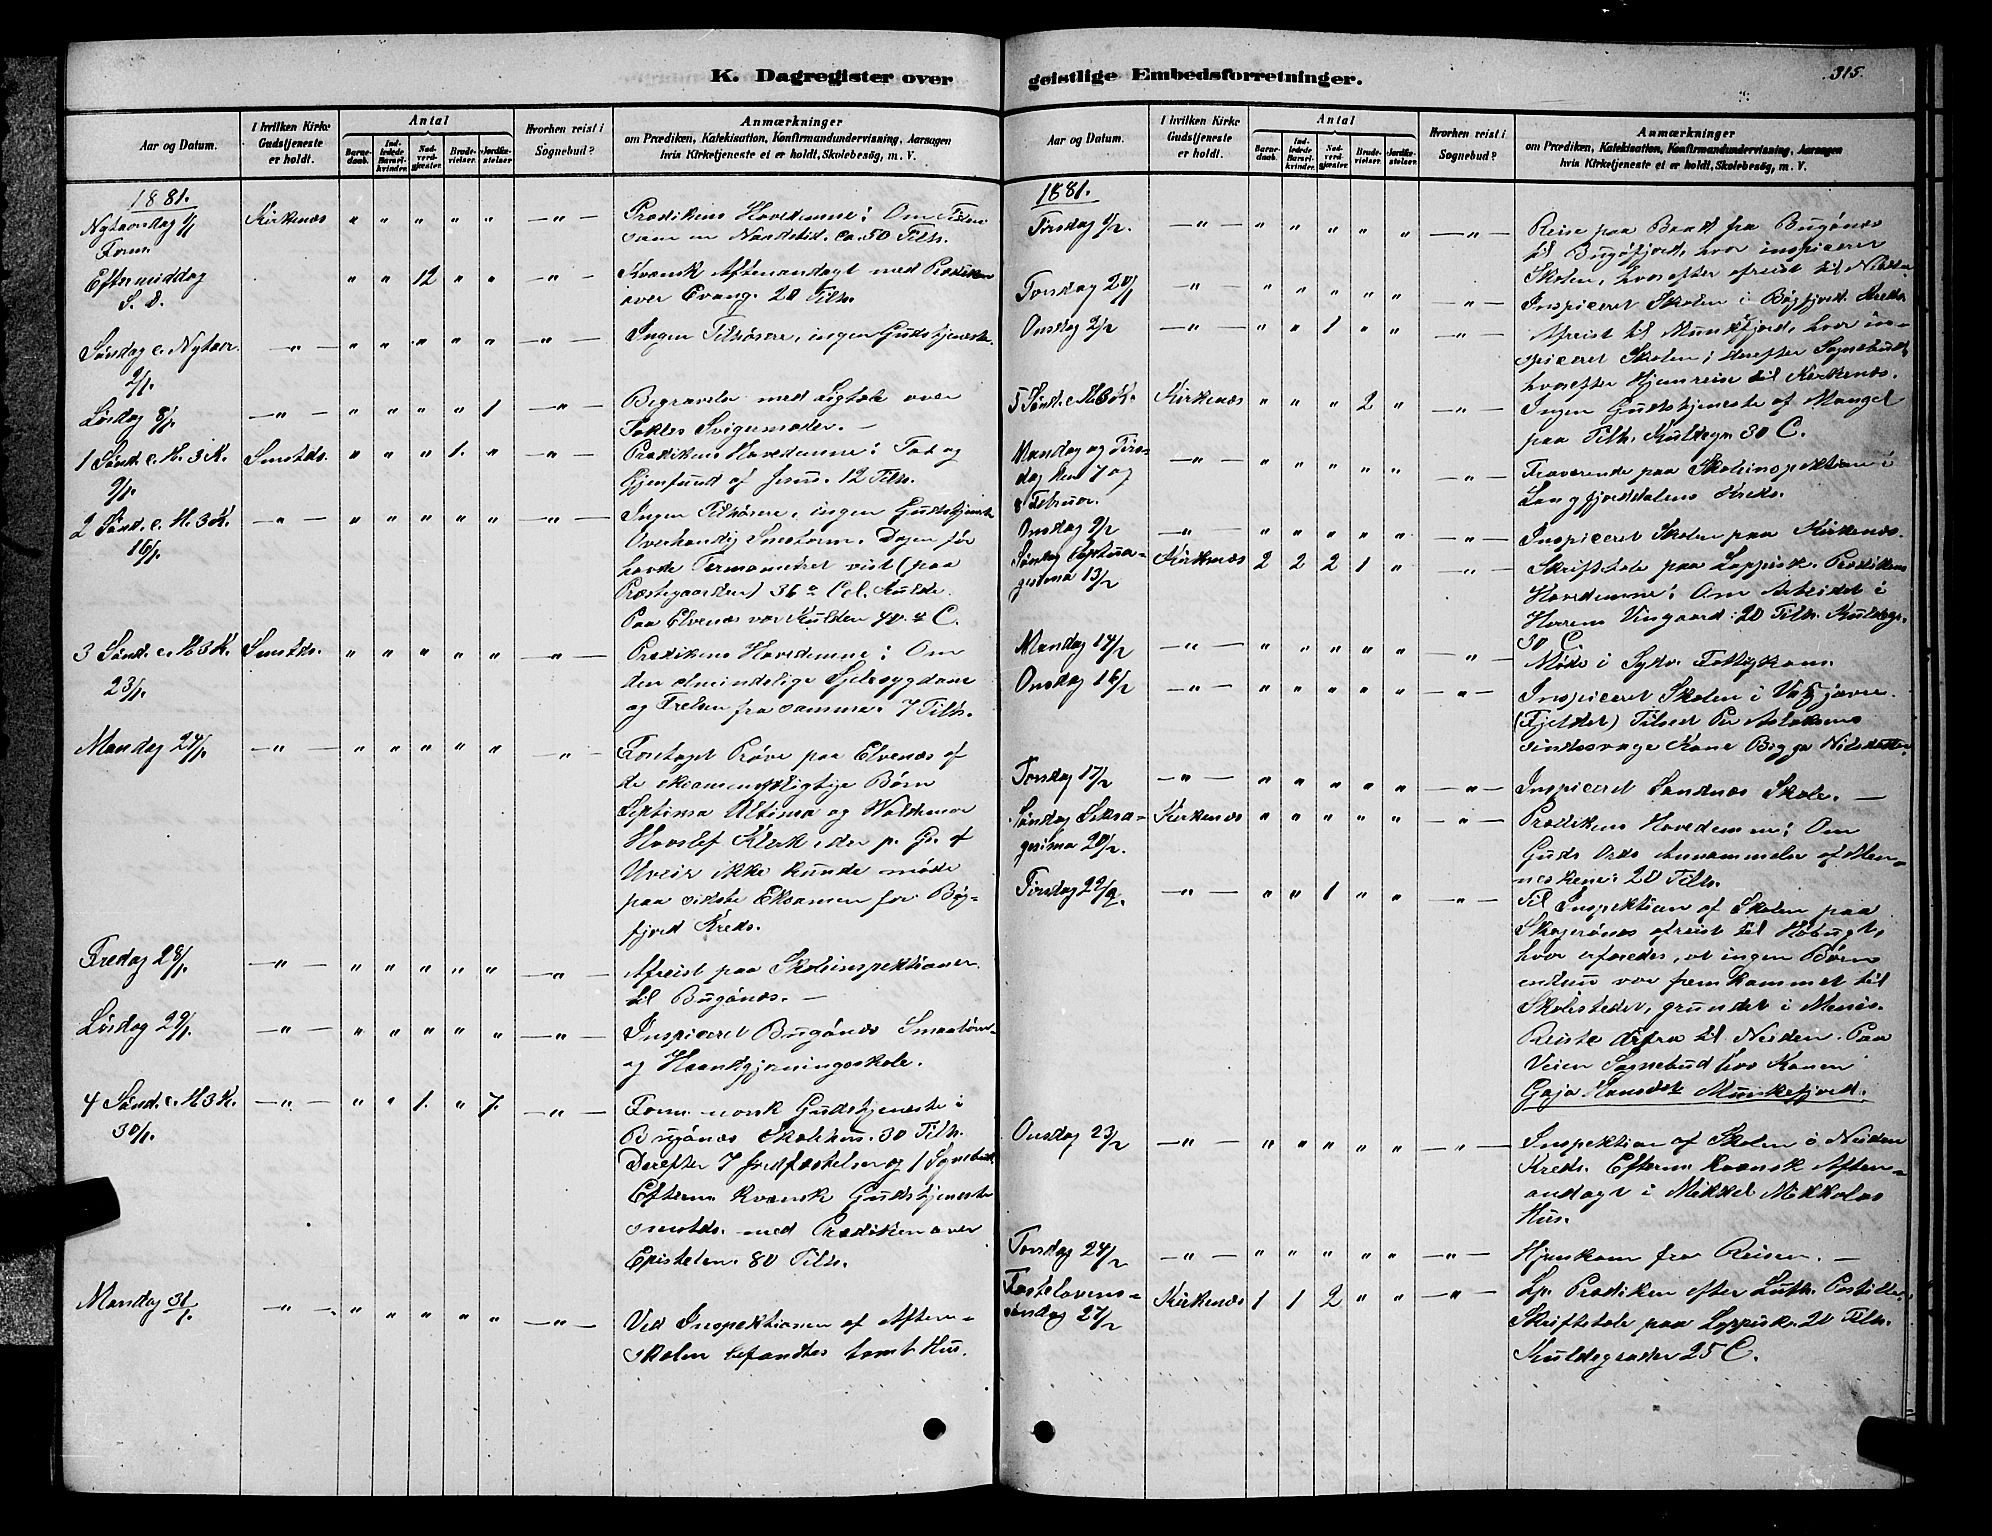 K. Dagregister over
Aar og Datum.
I hvilken Kirke Gudstjeneste er holdt.
Antal
Barnedaab.
Indledede Barselkvinder.
Nadverdgjester.
Brudevielser.
Jordfæstelser.
Hvorhen reist i Sognebud?
Anmærkninger
om Prædiken, Katekisation, Konfirmandundervisning, Aarsagen
hvis Kirketjeneste ei er holdt, Skolebesøg, m. V.
1881.
Nytaarsdag 1/1 Kirkenæs " " " " " —"— Prædikens Hovedemne: Om Tiden
Form. som en Naadetid. ca. 50 Tilh.
Eftermiddag " " 12 " " —"— Kvænsk Aftenandagt med Prædiken
S. d. over Evang. 20 Tilh.
Søndag e. Nytaar —"— " " " " " —"— Ingen Tilhørere, ingen Gudstjeneste.
2/1.
Lørdag 8/1. —"— " " " " 1 —"— Begravelse med Ligtale over
Svigermoder. —
1 Sønd. e. H. 3 K. Smstds. " " " 1. " —"— Prædikens Hovedemne: Tab og
9/1. Gjenfund af Jesus. 12 Tilh.
2 Sønd. e. H. 3 K. —"— " " " " " —"— Ingen Tilhørere, ingen Gudstjeneste
16/1. Overhændig Snestorm. Dagen før
havde Termometret vist (paa
Præstegaarden) 36° Cel. Kulde.
Paa Elvenæs var Kulden 40° C.
3 Sønd. e. H 3 K. Smstds. " " " " " —"— Prædikens Hovedemne: Om
23/1. den almindelige Sjelesygdom
og Frelsen fra samme. 7 Tilh.
Mandag 24/1. —"— " " " " " " — Foretaget Prøve paa Elvenæs af
de eksamenspligtige Børn
Septima Ultima og Waldemar
Havslef Klerk, der p. Gr. af
Uveir ikke kunde møde
paa sidste Eksamen for Bøg-
fjord Kreds.
Fredag 28/1. —"— " " " " " —"— Afreist paa Skoleinspektioner
til Bugønæs. —
Lørdag 29/1. —"— " " " " " —"— Inspiceret Bugønæs Smaabørns-
og Haandgjerningsskole.
4 Sønd. e. H 3 K. —"— " " 1. " 7. —"— Form. norsk Gudstjeneste i
30/1. Bugønæs Skolehus. 30 Tilh.
Derefter 7 Jordfæstelser og 1 Sognebud.
Efterm. kvænsk Gudstjeneste
smstds. med Prædiken over
Epistelen. 80 Tilh.
Mandag 31/1. —"— " " " " " —"— Ved Inspektionen af Aften-
skolen befandtes tomt Hus.
geistlige Embedsforretninger.
315.
Aar og Datum.
I hvilken Kirke Gudstjeneste er holdt.
Antal
Barnedaab.
Indledede Barselkvinder.
Nadverdgjester.
Brudevielser.
Jordfæstelser.
Hvorhen reist i Sognebud?
Anmærkninger
om Prædiken, Katekisation, Konfirmandundervisning, Aarsagen
hvis Kirketjeneste ei er holdt, Skolebesøg, m. V.
1881.
Tirsdag 1/2 —"— " " " " " —"— Reise paa Baad fra Bugønæs
til Bugøfjord, hvor inspicerer
Skolen, hvorefter afreist til Neiden
Torsdag 20/1 —"— " " " " " —"— Inspiceret Skolen i Bøgfjord Kreds
Onsdag 2/2 —"— " " 1 " " —"— Afreist til Munkfjord, hvor in-
spiceret Skolen; derefter Sognebud,
hvorefter Hjemreise til Kirkenæs.
5 Sønd. e. H 3 K. Kirkenæs " " " 2 " —"— Ingen Gudstjeneste af Mangel
paa Tilh. Kuldegr. 30 C.
Mandag og Tirs- —"— " " " " " —"— Fraværende paa Skoleinspektion i
dag den 7 og Langfjorddalens Kreds.
8 Februar.
Onsdag 9/2 —"— " " " " " —"— Inspiceret Skolen paa Kirkenæs.
Søndag Septua- Kirkenæs 2 2 2 1 " —"— Skriftetale paa Lappisk. Prædikens
gesima 13/2 Hovedemne: Om Arbeidet i
Herrens Vingaard. 20 Tilh. Kuldegr.
30 C.
Mandag 14/2 —"— " " " " " —"— Møde i Sydv. Fattigkom.
Onsdag 16/2 —"— " " " " " —"— Inspiceret Skolen i
(Fjeldet) Tilseet Per Aslaksens
sindssvage Kone Bigga Nilsdatter
Torsdag 17/2 —"— " " " " " —"— Inspiceret Sandnæs Skole. —
Søndag Seksa- Kirkenæs " " " " " —"— Prædikens Hovedemne: Om
gesima 20/2. Guds Ords Annammelse af Men-
neskene. 20 Tilh.
Tirsdag 22/2. —"— " " 1 " " —"— Til Inspektion af Skolen paa
Skogerønæs afreist til Høbugt,
hvor erfaredes, at ingen Børn
endnu var fremkommet til
Skolestedet, grundet i Menis.
Reiste derfra til Neiden. Paa
Veien Sognebud hos Konen
Gaja Hansdt Munkefjord.
Onsdag 23/2 —"— " " " " " —"— Inspektion af Skolen i Neiden
Kreds. Efterm. kvænsk Aften-
andagt i Mikkel Mikkolas
Hus.
Torsdag 24/2 —"— " " " " " —"— Hjemkom fra Reisen. —
Fastelavens- Kirkenæs 1 1 2 " " —"— Lp. Prædiken efter Luth. Postille.
søndag 27/2 Skriftetale paa Lappisk. 20 Tilh.
Kuldegrader 25 C.